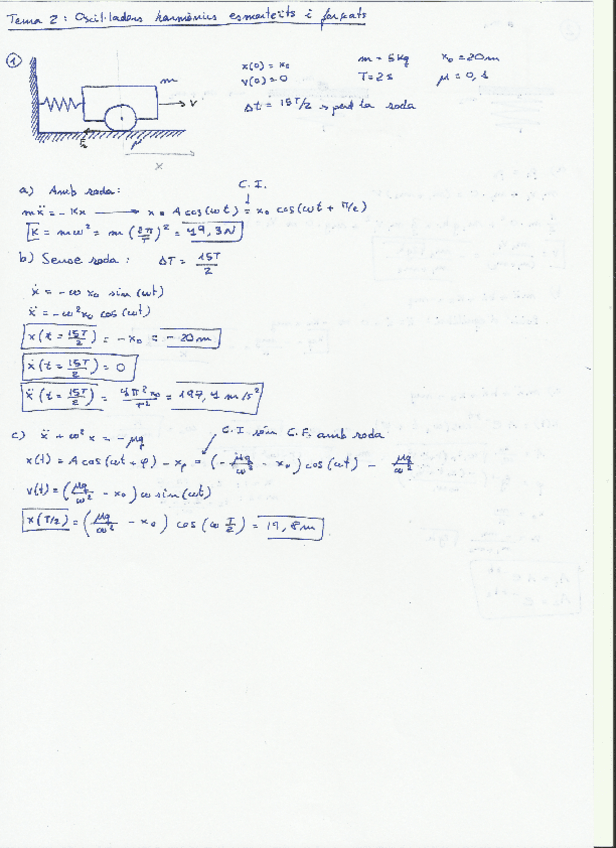 Tema 2: Oscil·ladors harmònics esmorteïts i forçats
1
m
v
μ
x
x(0) = x₀
v(0) = 0
m = 5 kg x₀ = 20m
T = 2 s μ = 0,1
Δt = 15T/2 es perd la roda
a) Amb roda:
C.I.
mẍ = -Kx → x = A cos(ωt) = x₀ cos(ωt + π/2)
K = mω² = m (2π/T)² = 49,3N
b) Sense roda: ΔT = 15T/2
ẋ = -ω x₀ sin(ωt)
ẍ = -ω²x₀ cos(ωt)
x(t = 15T/2) = -x₀ = -20m
ẋ(t = 15T/2) = 0
ẍ(t = 15T/2) = 4π²x₀/T² = 197,4 m/s²
c) ẍ + ω²x = -μg
C.I són C.F. amb roda
x(t) = A cos(ωt + φ) - xₚ = (-μg/ω² - x₀) cos(ωt) - μg/ω²
v(t) = (μg/ω² - x₀) ω sin(ωt)
x(T/2) = (μg/ω² - x₀) cos(ω T/2) = 19,8m